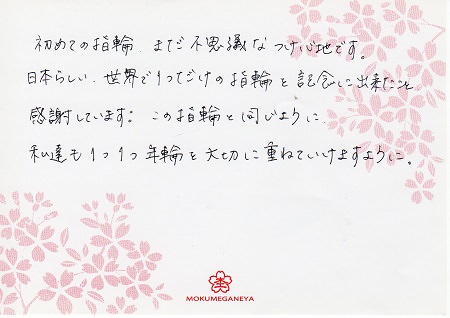 初めての指輪、まだ不思議なつけ心地です。
日本らしい、世界で1つだけの指輪を記念に出来たこと
感謝しています。この指輪と同じように、
私達も1つ1つ年輪を大切に重ねていけますように。
MOKUMEGANEYA